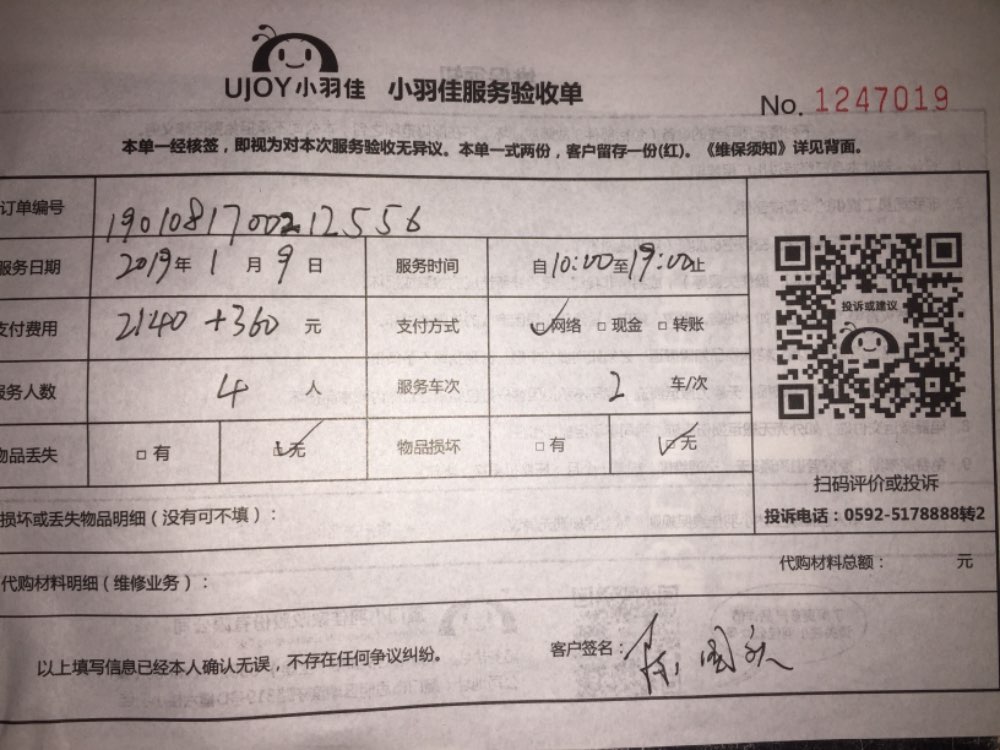 UJOY小羽佳 小羽佳服务验收单
No. 1247019
本单一经核签，即视为对本次服务验收无异议。本单一式两份，客户留存一份(红)。《维保须知》详见背面。
订单编号 1901081700212556
服务日期 2019年1月9日 服务时间 自10:00至19:00止
支付费用 2140+360 元 支付方式 □网络 □现金 □转账
服务人数 4 人 服务车次 2 车/次
物品丢失 □有 □无 物品损坏 □有 □无
投诉或建议
扫码评价或投诉
投诉电话：0592-5178888转2
损坏或丢失物品明细（没有可不填）：
代购材料总额： 元
代购材料明细（维修业务）：
以上填写信息已经本人确认无误，不存在任何争议纠纷。
客户签名：